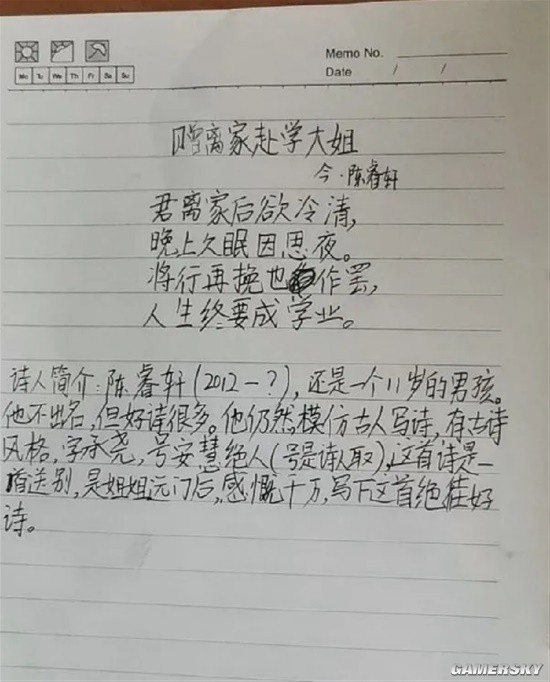 Memo No.
Mo Tu We Th Fr Sa Su
Date / /
赠离家赴学大姐
今·陈睿轩
君离家后欲冷清,
晚上欠眠因思夜。
将行再挽也作罢,
人生终要成学业。
诗人简介:陈睿轩(2012-?),还是一个11岁的男孩。
他不出名,但好诗很多。他仍然模仿古人写诗,有古诗
风格,字承尧,号安慧绝人(号是诗人取),这首诗是一
首送别,是姐姐远门后,感慨千万,写下这首绝佳好
诗。
GAMERSKY